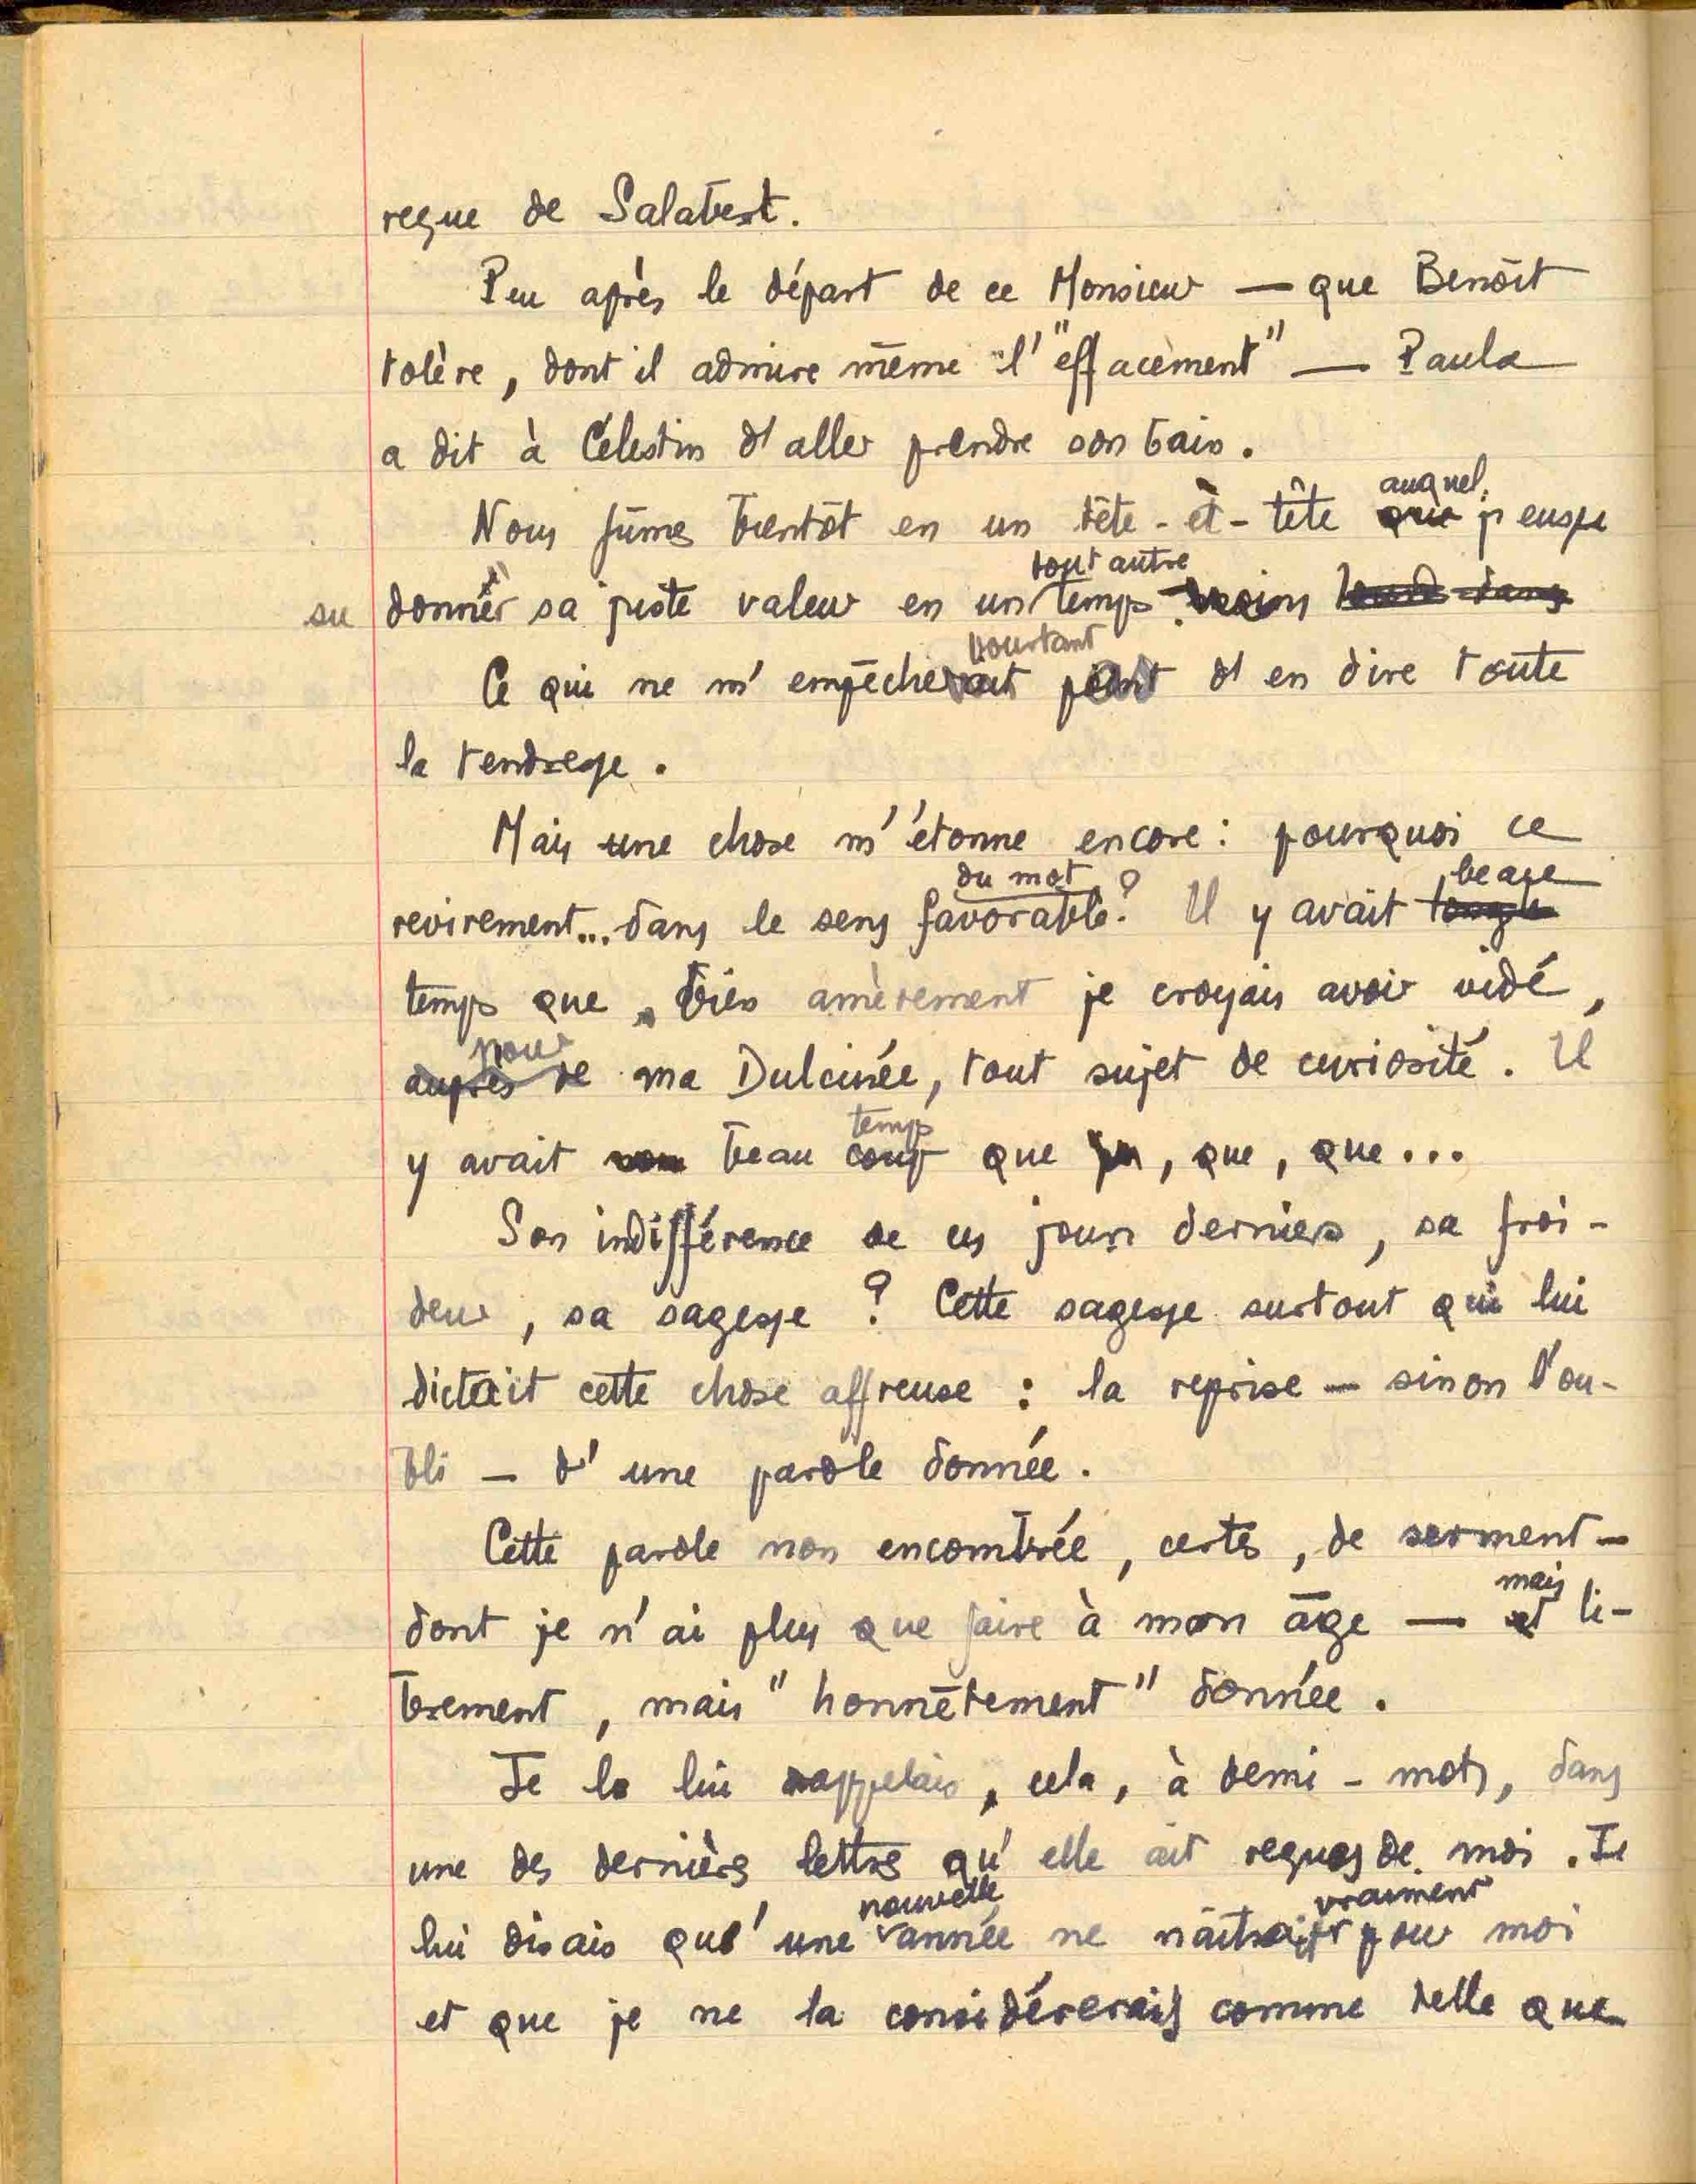 reçue de Salabert.
Peu après le départ de ce Monsieur — que Benoît
tolère, dont il admire même l'"effacement" — Paula
a dit à Célestin d'aller prendre son bain.
auquel
Nous fûmes bientôt en un tête-à-tête que j'eusse
tout autre
su donner sa juste valeur en un temps moins lourd dans
pourtant
Ce qui ne m'empêcherait point d'en dire toute
la tendresse.
Mais une chose m'étonne encore: pourquoi ce
du mot beau
revirement... dans le sens favorable? Il y avait longtemps
temps que, bien amèrement je croyais avoir vidé,
pour
auprès de ma Dulcinée, tout sujet de curiosité. Il
temps
y avait beau coup que, que, que...
Son indifférence de ces jours derniers, sa froi-
deur, sa sagesse? Cette sagesse surtout qui lui
dictait cette chose affreuse : la reprise — sinon l'ou-
bli — d'une parole donnée.
Cette parole non encombrée, certes, de serment —
mais
dont je n'ai plus que faire à mon âge — et li-
brement, mais "honnêtement" donnée.
Je le lui rappelais, cela, à demi-mots, dans
une des dernières lettres qu'elle ait reçues de moi. Je
nouvelle vraiment
lui disais qu'une année ne naîtrait pour moi
et que je ne la considérerais comme telle que